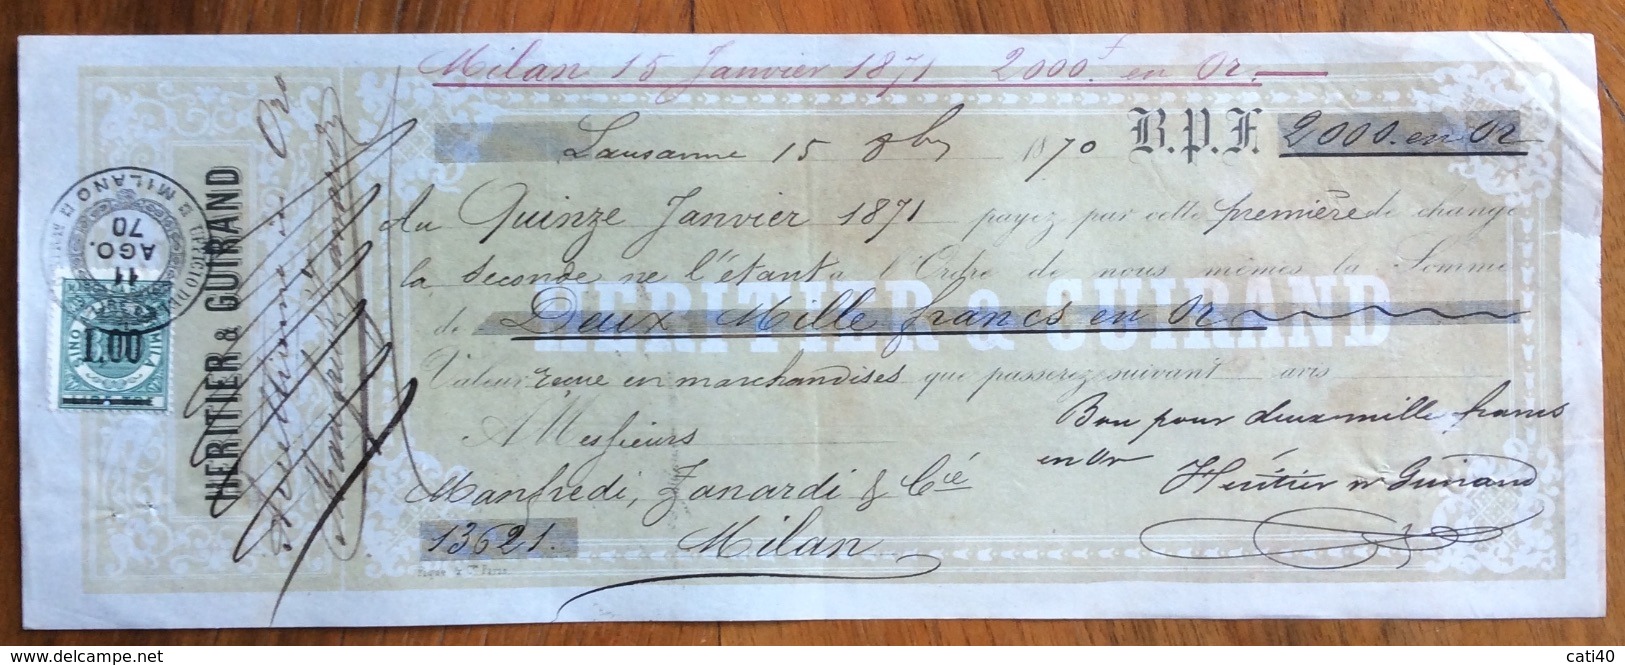 Milan 15 Janvier 1871 2000 f en Or.
Lausanne 15 8bre 1870 B.P.F. 2000. en Or
Au Quinze Janvier 1871 payez par cette première de change
la Seconde ne l'étant à l'Ordre de nous mêmes la Somme
de Deux Mille francs en Or
HERITIER & GUIRAND
Valeur reçue en marchandises que passerez suivant avis
A Messieurs
Bon pour deux mille francs
en Or
Manfredi, Zanardi & Cie
Héritier & Guirand
13621.
Milan
HERITIER & GUIRAND
MILANO
11
AGO.
70
1,00
cati40